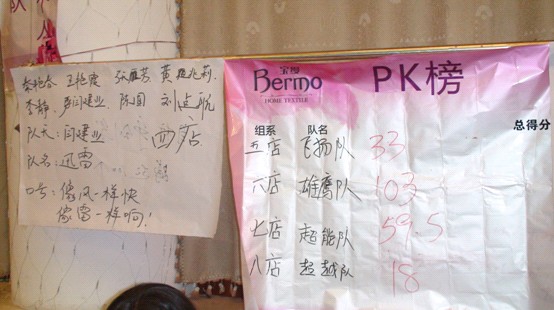 队
人
王艳霞
李静 闫建业
队长:闫建业
西店
队名:迅雷
口号:像风一样快
像雷一样响!
宝缦
Bermo
HOME TEXTILE
PK榜
组系 队名 总得分
五店 飞扬队 33
六店 雄鹰队 103
七店 超能队 59.5
八店 超越队 18